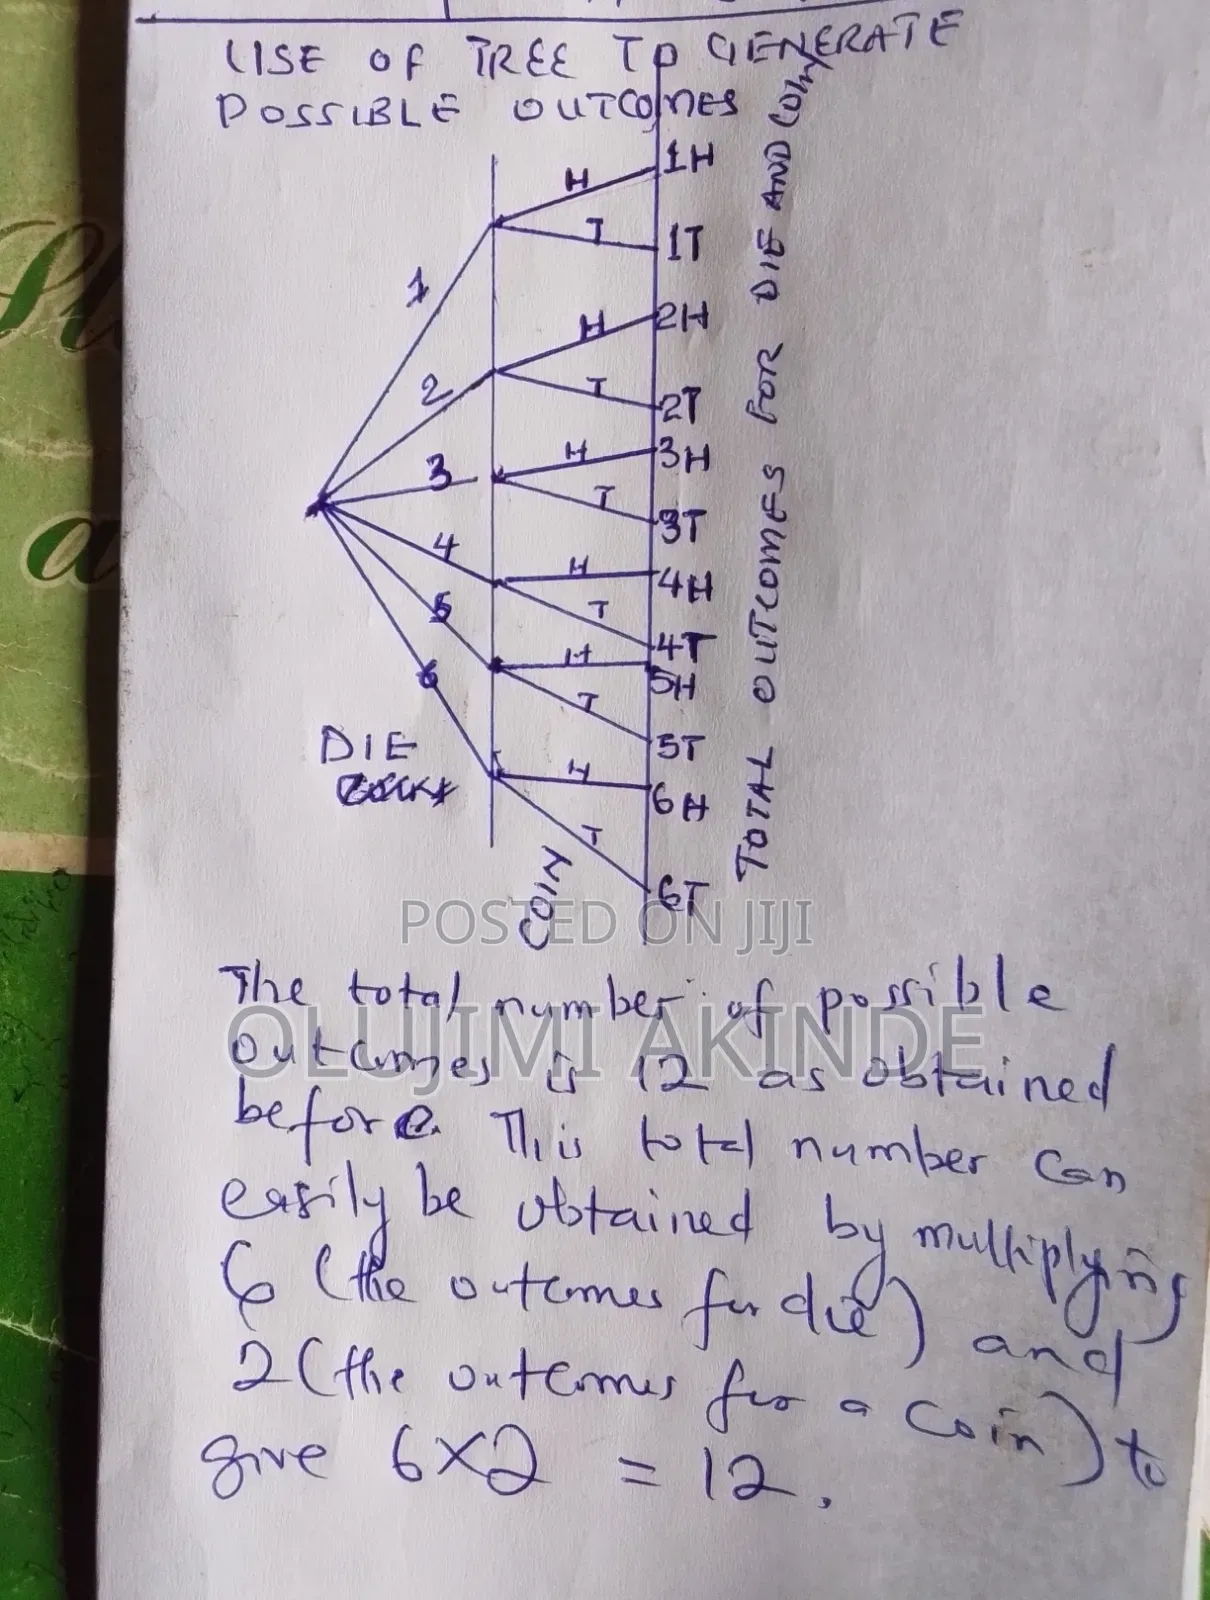 USE OF TREE TO GENERATE
POSSIBLE OUTCOMES
1
2
3
4
5
6
H
T
H
T
H
T
H
T
H
T
H
T
1H
1T
2H
2T
3H
3T
4H
4T
5H
5T
6H
6T
DIE
COIN
TOTAL OUTCOMES FOR DIE AND COIN
POSTED ON JIJI
OLUJIMI AKINDE
The total number of possible
outcomes is 12 as obtained
before. This total number can
easily be obtained by multiplying
6 (the outcomes for die) and
2 (the outcomes for a coin) to
give 6×2 = 12.